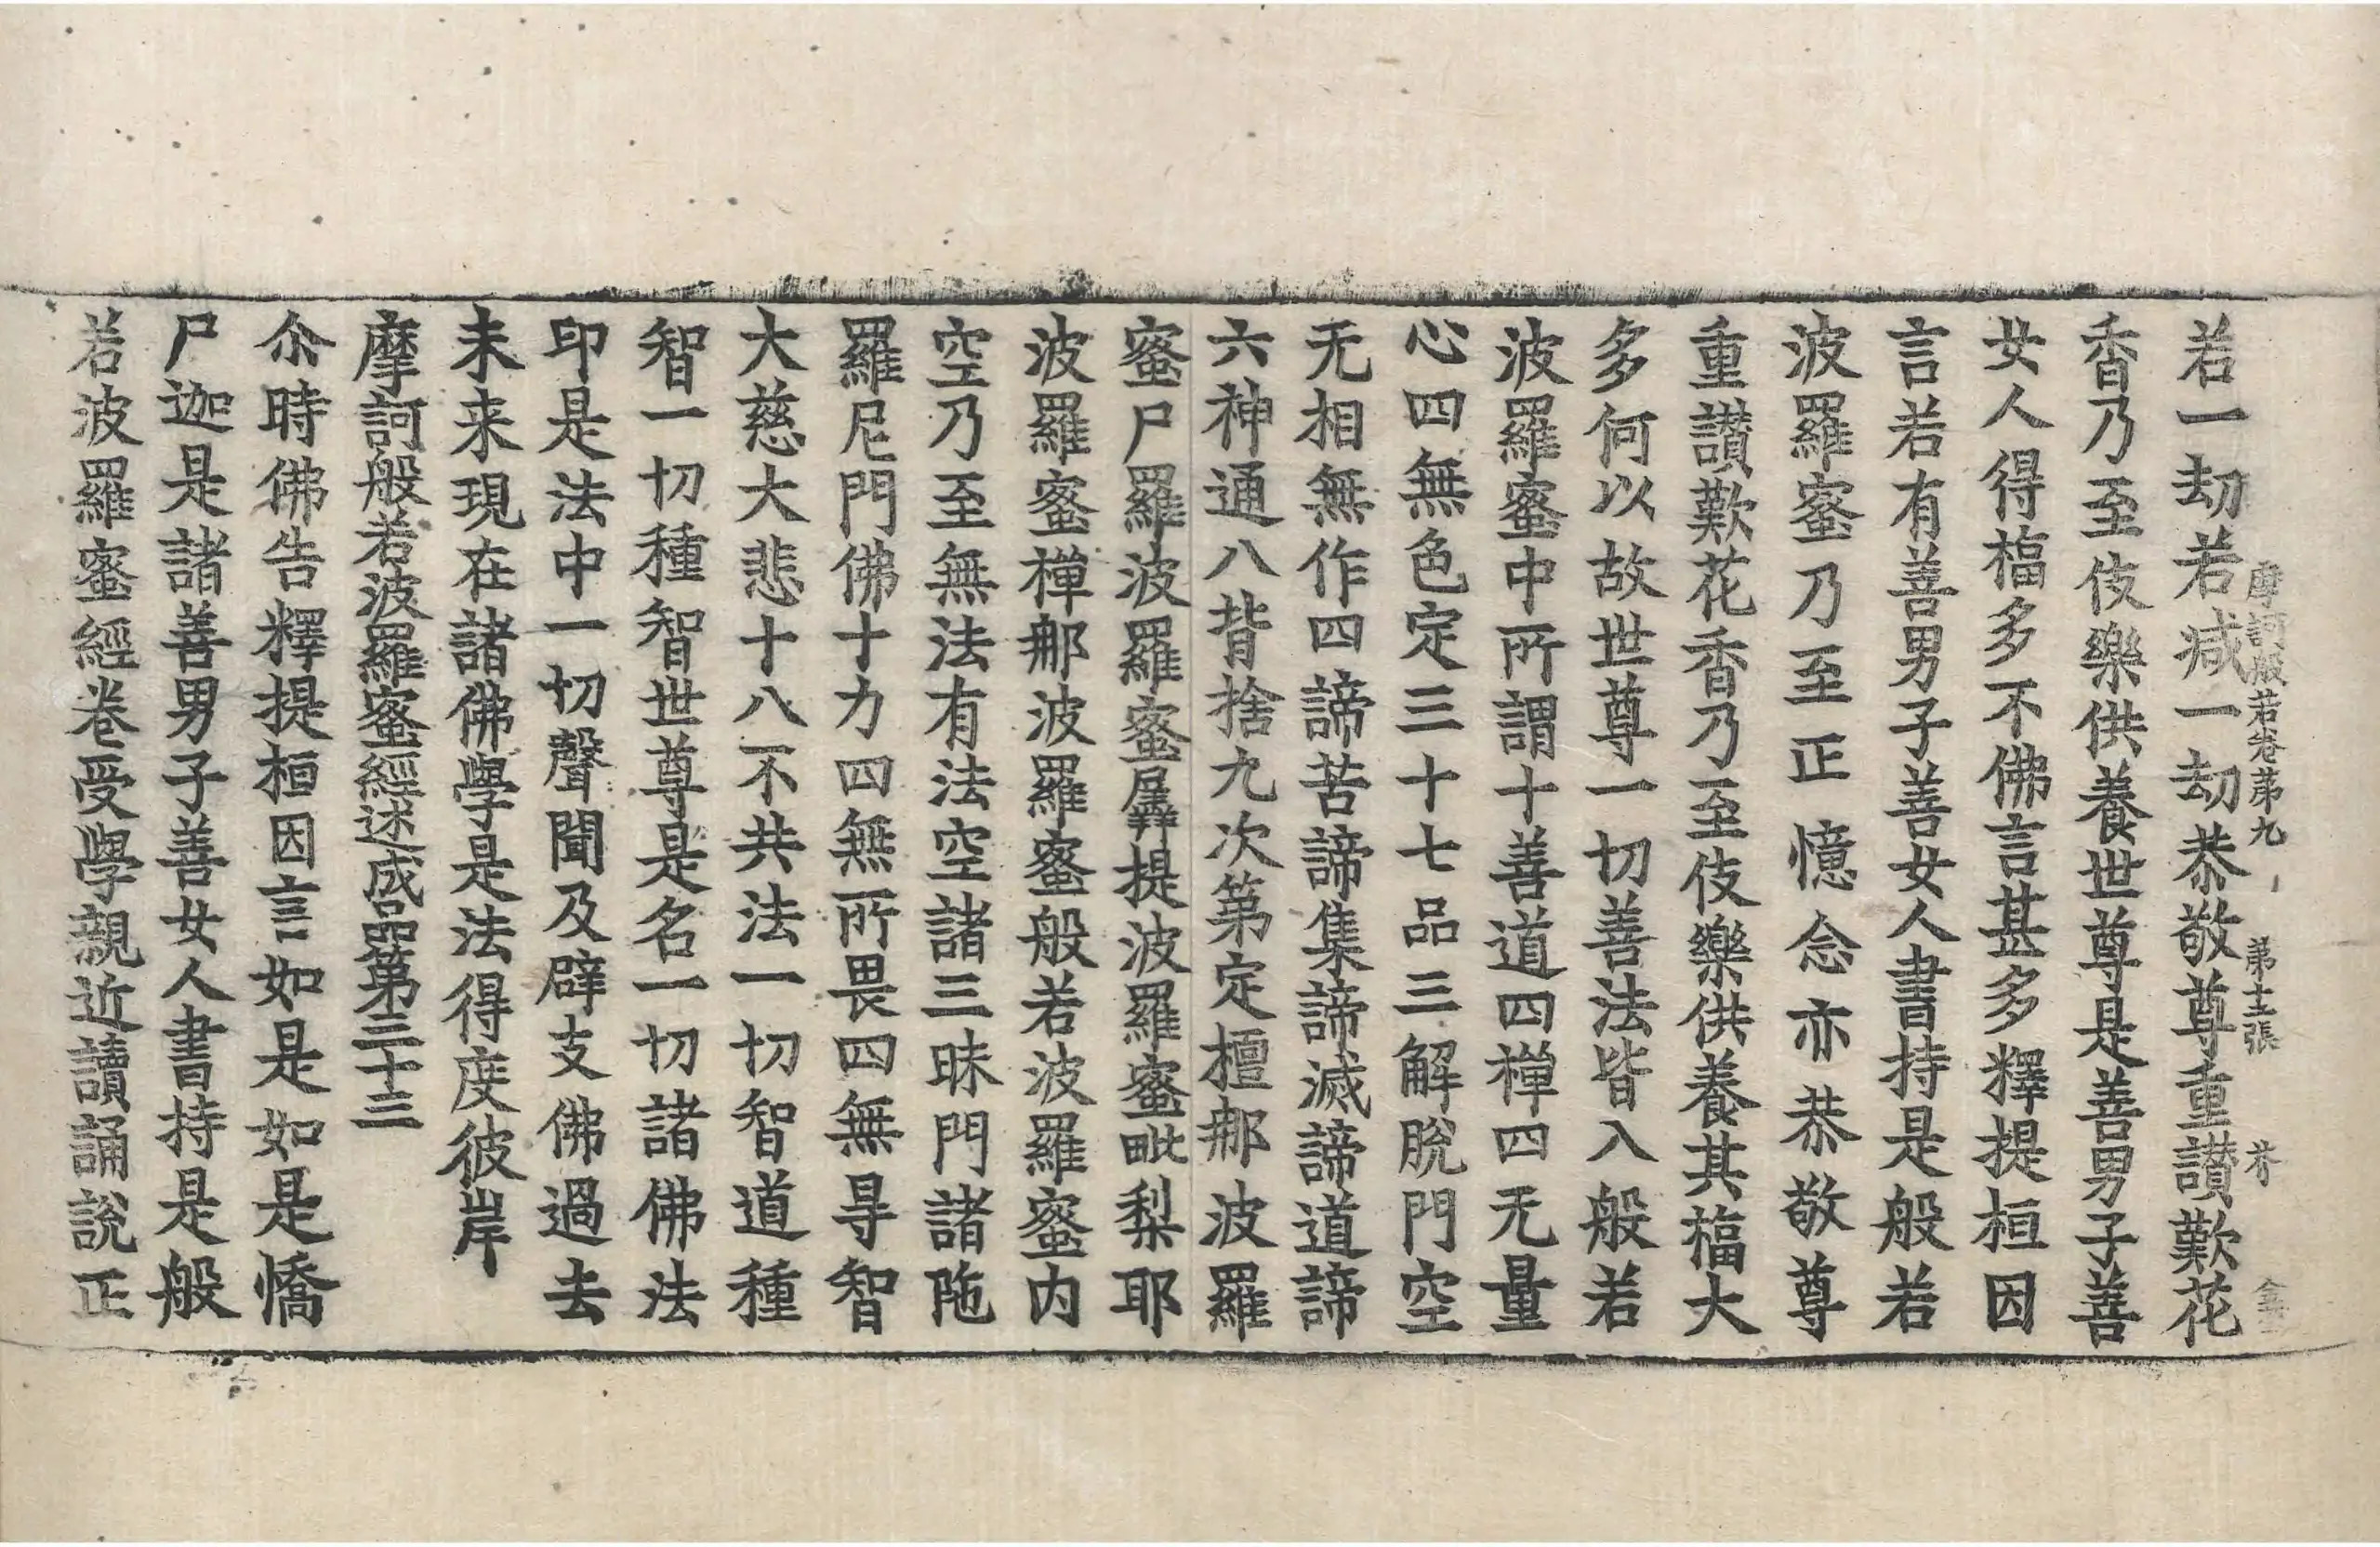 摩訶般若卷苐九 苐十三張 芥
若一劫若減一劫恭敬尊重讃歎花
香乃至伎樂供養世尊是善男子善
女人得福多不佛言甚多釋提桓因
言若有善男子善女人書持是般若
波羅蜜乃至正憶念亦恭敬尊
重讃歎花香乃至伎樂供養其福大
多何以故世尊一切善法皆入般若
波羅蜜中所謂十善道四禪四无量
心四無色定三十七品三解脫門空
无相無作四諦苦諦集諦滅諦道諦
六神通八背捨九次第定檀那波羅
蜜尸羅波羅蜜羼提波羅蜜毗梨耶
波羅蜜禪那波羅蜜般若波羅蜜内
空乃至無法有法空諸三昧門諸陁
羅尼門佛十力四無所畏四無㝵智
大慈大悲十八不共法一切智道種
智一切種智世尊是名一切諸佛法
印是法中一切聲聞及辟支佛過去
未来現在諸佛學是法得度彼岸
摩訶般若波羅蜜經述成品第三十三
尒時佛告釋提桓因言如是如是憍
尸迦是諸善男子善女人書持是般
若波羅蜜經卷受學親近讀誦說正